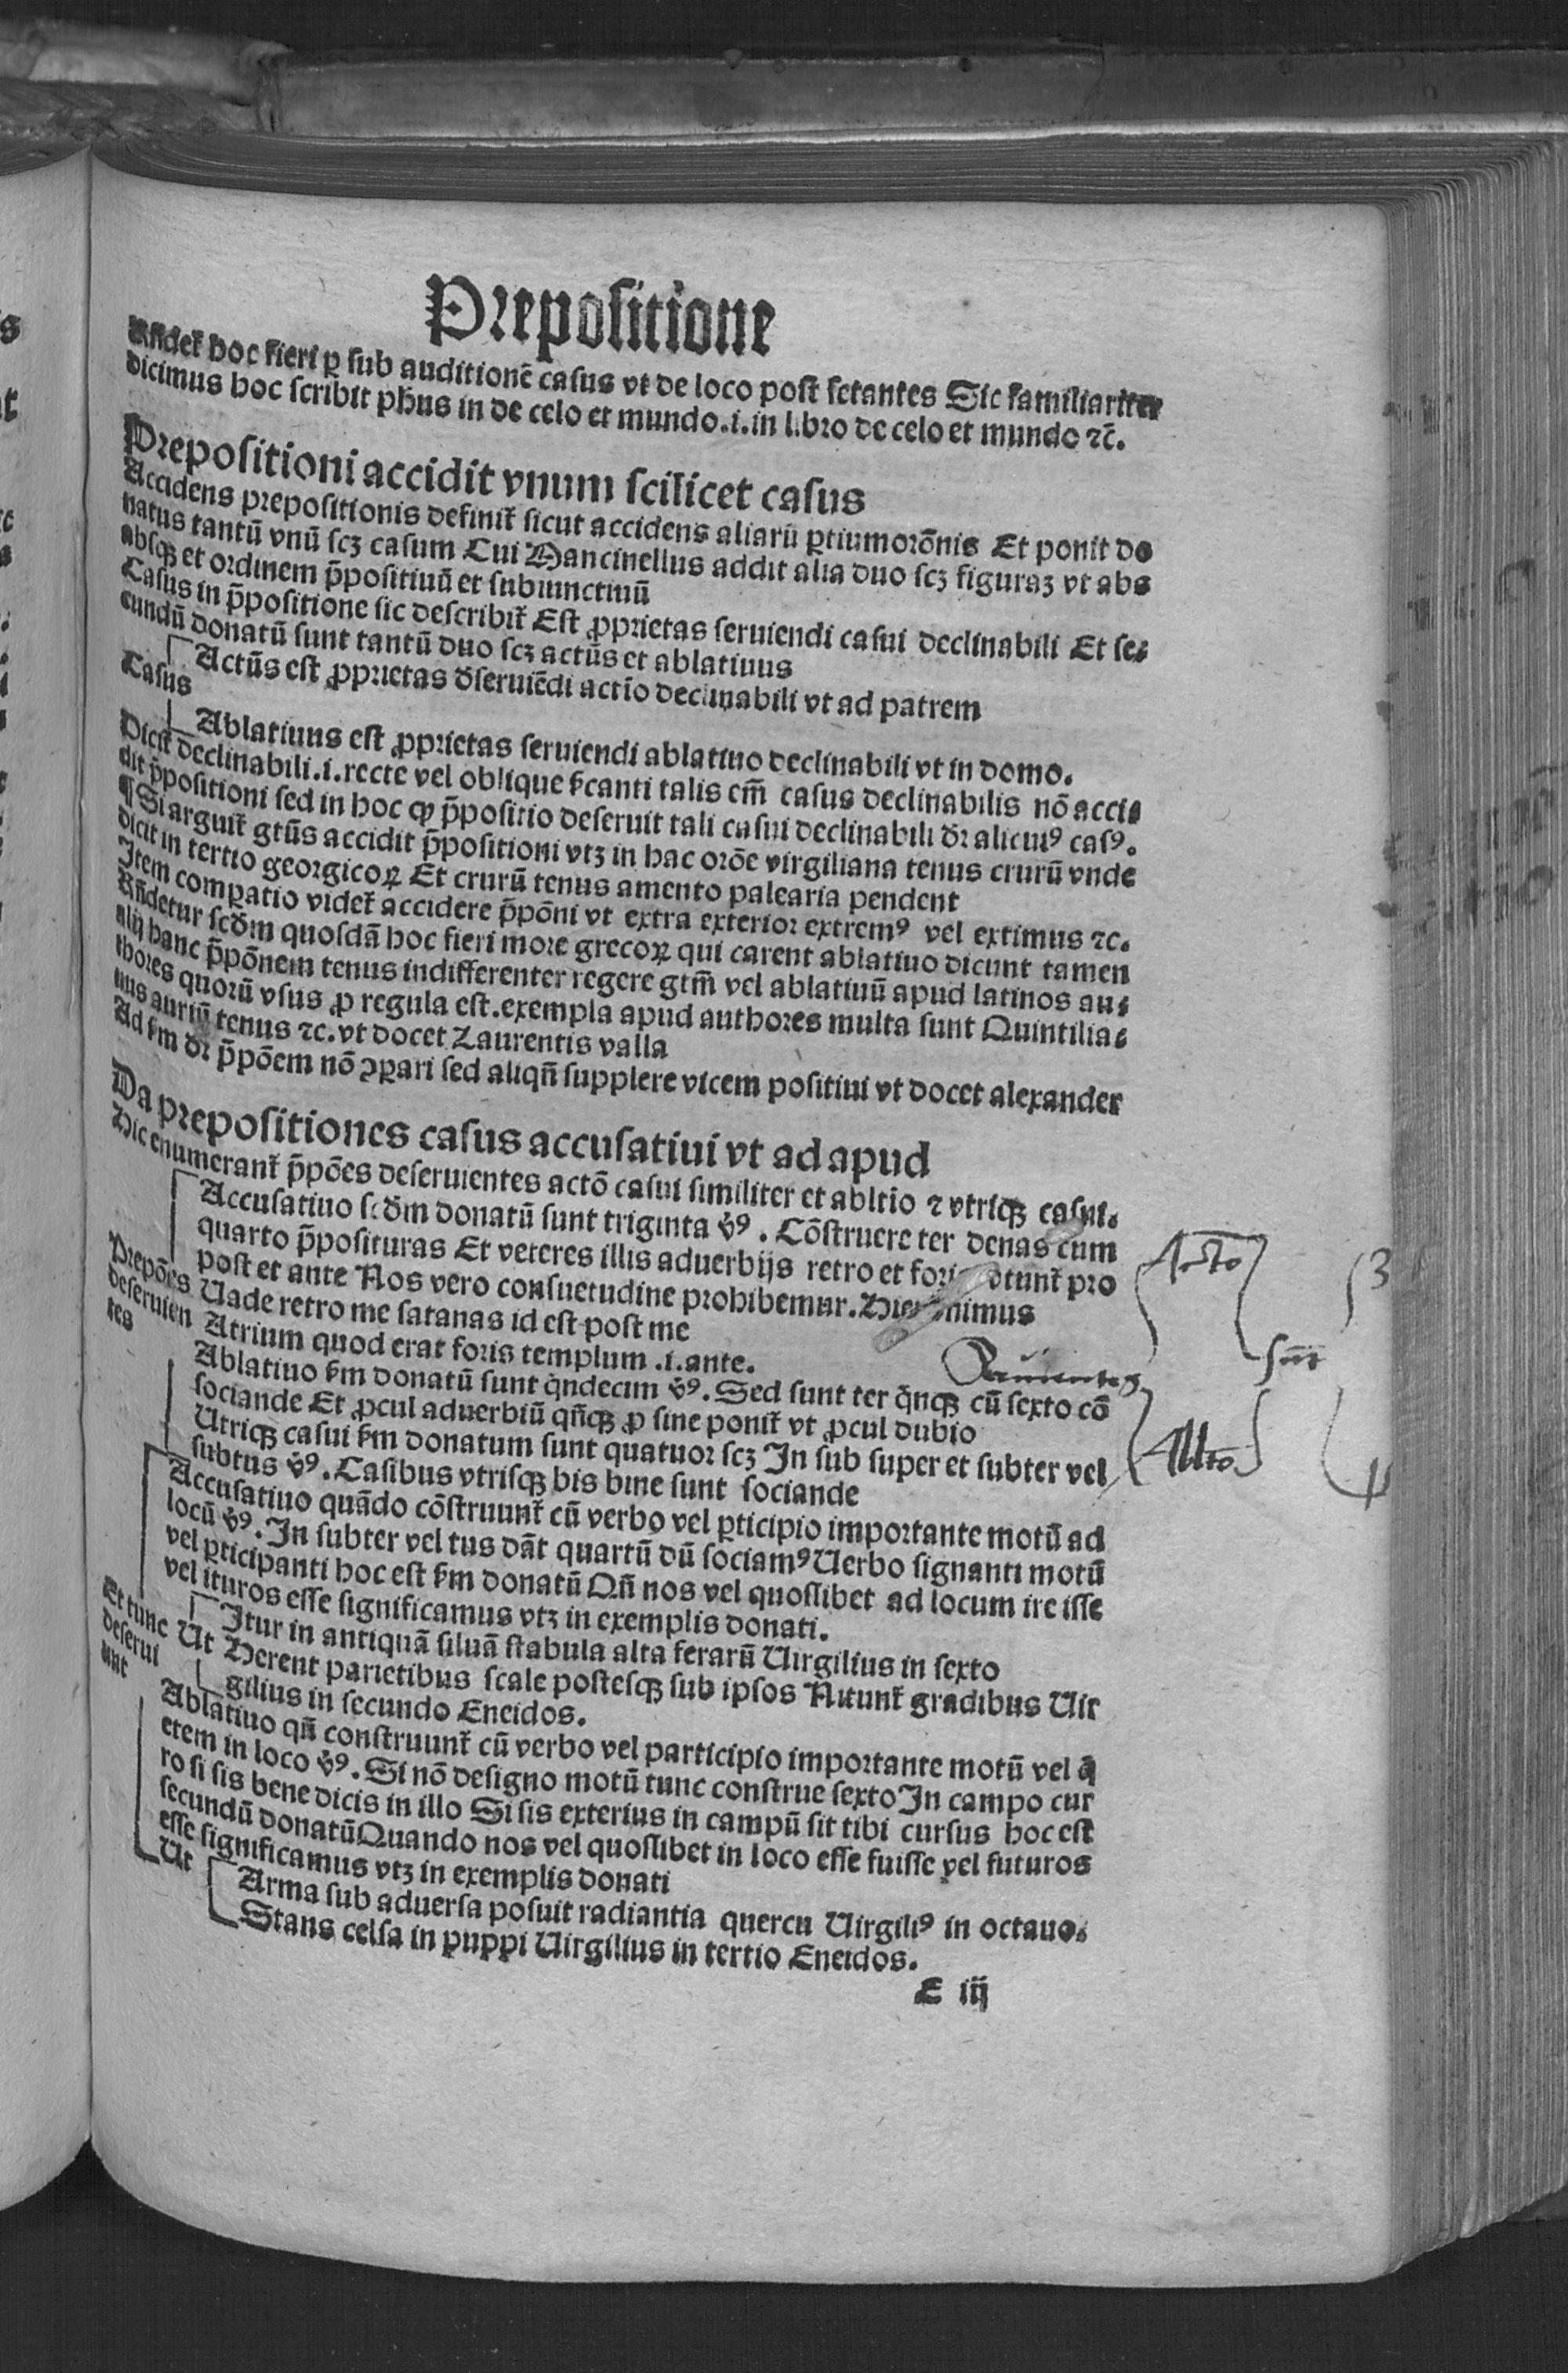 Prepositione
Rñdet᷑ hoc fieri ꝑ sub auditionē casus vt de loco post fetantes Sic familiariter
dicimus hoc scribit ph̄us in de celo et mundo.i.in libro de celo et mundo ⁊c̄.
Prepositioni accidit vnum scilicet casus
Accidens prepositionis definit᷑ sicut accidens aliarū ꝑtiumorōnis Et ponit do
natus tantū vnū scꝫ casum Cui Mancinellus addit alia duo scꝫ figuraꝫ vt abs
absqꝫ et ordinem p̄positiuū et subiunctiuū
Casus in p̄positione sic describit᷑ Est ꝓprietas seruiendi casui declinabili Et se⸗
cundū donatū sunt tantū duo scꝫ actūs et ablatiuus
Actūs est ꝓprietas d̄seruiēdi actīo declinabili vt ad patrem
Casus
Ablatiuus est ꝓprietas seruiendi ablatiuo declinabili vt in domo.
Dicit᷑ declinabili.i.recte vel oblique s̄canti talis em̄ casus declinabilis nō acci⸗
dit p̄positioni sed in hoc ꝙ p̄positio deseruit tali casui declinabili dr̄ alicuiꝰ casꝰ.
¶ Si arguit᷑ gtūs accidit p̄positioni vtꝫ in hac orōe virgiliana tenus crurū vnde
dicit in tertio georgicoꝝ Et crurū tenus amento palearia pendent
Item comꝑatio videt᷑ accidere p̄pōni vt extra exterior extremꝰ vel extimus ⁊c.
Rñdetur scd̄m quosdā hoc fieri more grecoꝝ qui carent ablatiuo dicunt tamen
alij hanc p̄pōnem tenus indifferenter regere gtm̄ vel ablatiuū apud latinos au⸗
thores quorū vsus ꝓ regula est.exempla apud authores multa sunt Quintilia⸗
nus auriū tenus ⁊c.vt docet Laurentis valla
Ad s̄m dr̄ p̄pōem nō ꝯꝑari sed aliqn̄ supplere vicem positiui vt docet alexander
Da prepositiones casus accusatiui vt ad apud
Hic enumerant᷑ p̄pōes deseruientes actō casui similiter et abltīo ⁊ vtriqꝫ casui.
Accusatiuo scd̄m donatū sunt triginta v̄ꝰ. Cōstruere ter denas cum
quarto p̄posituras Et veteres illis aduerbijs retro et foris vtunt᷑ pro
post et ante Nos vero consuetudine prohibemur.Hieronimus
Prepōes Vade retro me satanas id est post me
deseruien Atrium quod erat foris templum .i.ante.
tes
Ablatiuo s̄m donatū sunt q̄ndecim v̄ꝰ. Sed sunt ter q̄nqꝫ cū sexto cō
sociande Et ꝓcul aduerbiū qn̄qꝫ ꝓ sine ponit᷑ vt ꝓcul dubio
Utriqꝫ casui s̄m donatum sunt quatuor scꝫ In sub super et subter vel
subtus v̄ꝰ. Casibus vtrisqꝫ bis bine sunt sociande
Accusatiuo quādo cōstruunt᷑ cū verbo vel ꝑticipio importante motū ad
locū v̄ꝰ. In subter vel tus dāt quartū dū sociamꝰ Verbo signanti motū
vel ꝑticipanti hoc est s̄m donatū Qn̄ nos vel quoslibet ad locum ire isse
vel ituros esse significamus vtꝫ in exemplis donati.
Itur in antiquā siluā stabula alta ferarū Virgilius in sexto
Et tunc Ut Herent parietibus scale postesqꝫ sub ipsos Nitunt᷑ gradibus Vir
deserui gilius in secundo Eneidos.
unt
Ablatiuo qn̄ construunt᷑ cū verbo vel participio importante motū vel q̄
etem in loco v̄ꝰ. Si nō designo motū tunc construe sexto In campo cur
ro si sis bene dicis in illo Si sis exterius in campū sit tibi cursus hoc est
secundū donatū Quando nos vel quoslibet in loco esse fuisse vel futuros
esse significamus vtꝫ in exemplis donati
Ut Arma sub aduersa posuit radiantia quercu Virgiliꝰ in octauo.
Stans celsa in puppi Virgilius in tertio Eneidos.
E iij
Actō
3
sūt
Abltō
4